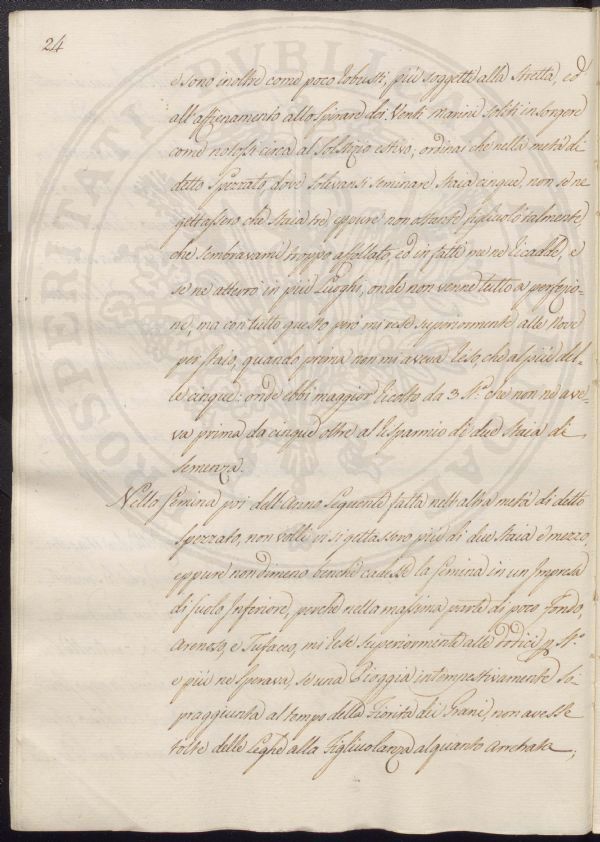 24
e sono inoltre come poco robusti, più soggetti alla stretta, ed
all'affienamento allo spirare dei Venti marini soliti insorgere
come notossi circa al Solstizio estivo, ordinai che nella metà di
detto Spezzato, dove solevansi seminare Staia cinque, non se ne
gettassero che Staia tre, eppure non ostante figliuolò talmente,
che sembravami troppo affollato, ed in fatti me ne ricadde, e
se ne atterrò in più Luoghi, onde non venne tutto a perfezio-
ne, ma con tutto questo però mi rese superiormente alle Nove
per Staio, quando prima non mi aveva reso, che al più del-
le cinque: onde ebbi maggior ricolto da 3 St.ª che non ne ave-
va prima da cinque oltre al risparmio di due Staia di
Semenza.
Nella Semina poi dell'Anno seguente fatta nell'altra metà di detto
Spezzato, non volli vi si gettassero più di due Staia e mezzo,
eppure nondimeno benché cadesse la Semina in un Impresa
di suolo Inferiore, perché nella massima parte di poco fondo,
Arenoso, e Tufaceo, mi rese superiormente alle p St.º
e più ne sperava, se una Pioggia intempestivamente so-
praggiunta al tempo della Fiorita dei Grani, non avesse
tolte delle Spighe alla Figliuolanza alquanto arretrata;
PROSPERITATI PUBLICAE